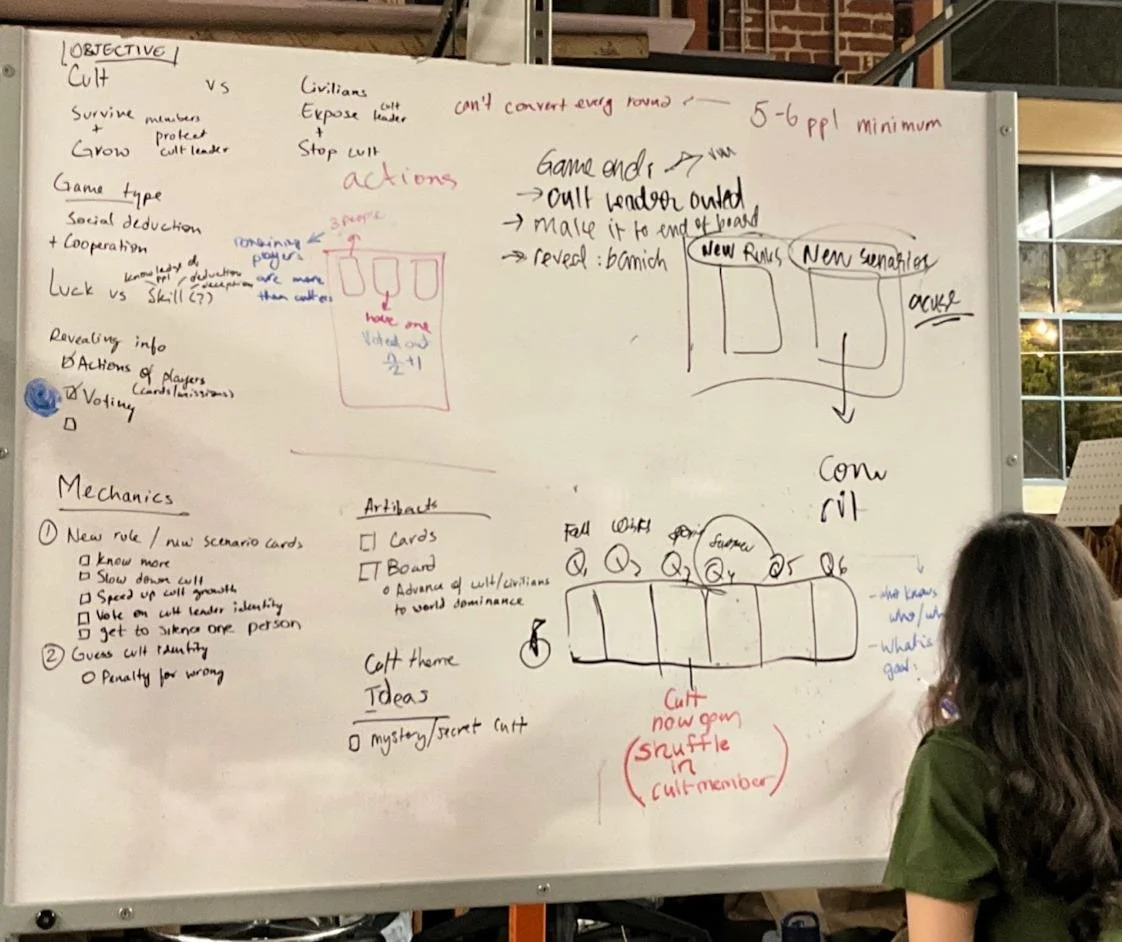 OBJECTIVE
Cult vs Civilians
Survive members
+ protect
Grow cult leader
Expose cult leader
+
Stop cult
can't convert every round
5-6 ppl minimum
actions
Game type
Social deduction
+ Cooperation
Luck vs Skill (?)
knowledge of ppl / deduction / deception
Revealing info
Actions of players
(cards/missions)
Voting
3 people
remaining players
are more
than
have one
Voted out
n/2 + 1
Game ends
→ cult leader outed
→ make it to end of board
→ reveal :
New Rules
New Scenarios
Mechanics
① New rule / new scenario cards
know more
Slow down cult
Speed up cult growth
Vote on cult leader identity
get to silence one person
② Guess cult identity
Penalty for wrong
Artifacts
Cards
Board
Advance of cult/civilians
to world dominance
Cult theme
Ideas
mystery/secret cult
Fall
summer
Q1 Q2 Q3 Q4 Q5 Q6
Cult
(shuffle
in
cult member)
- who knows
who/
- what is
goal